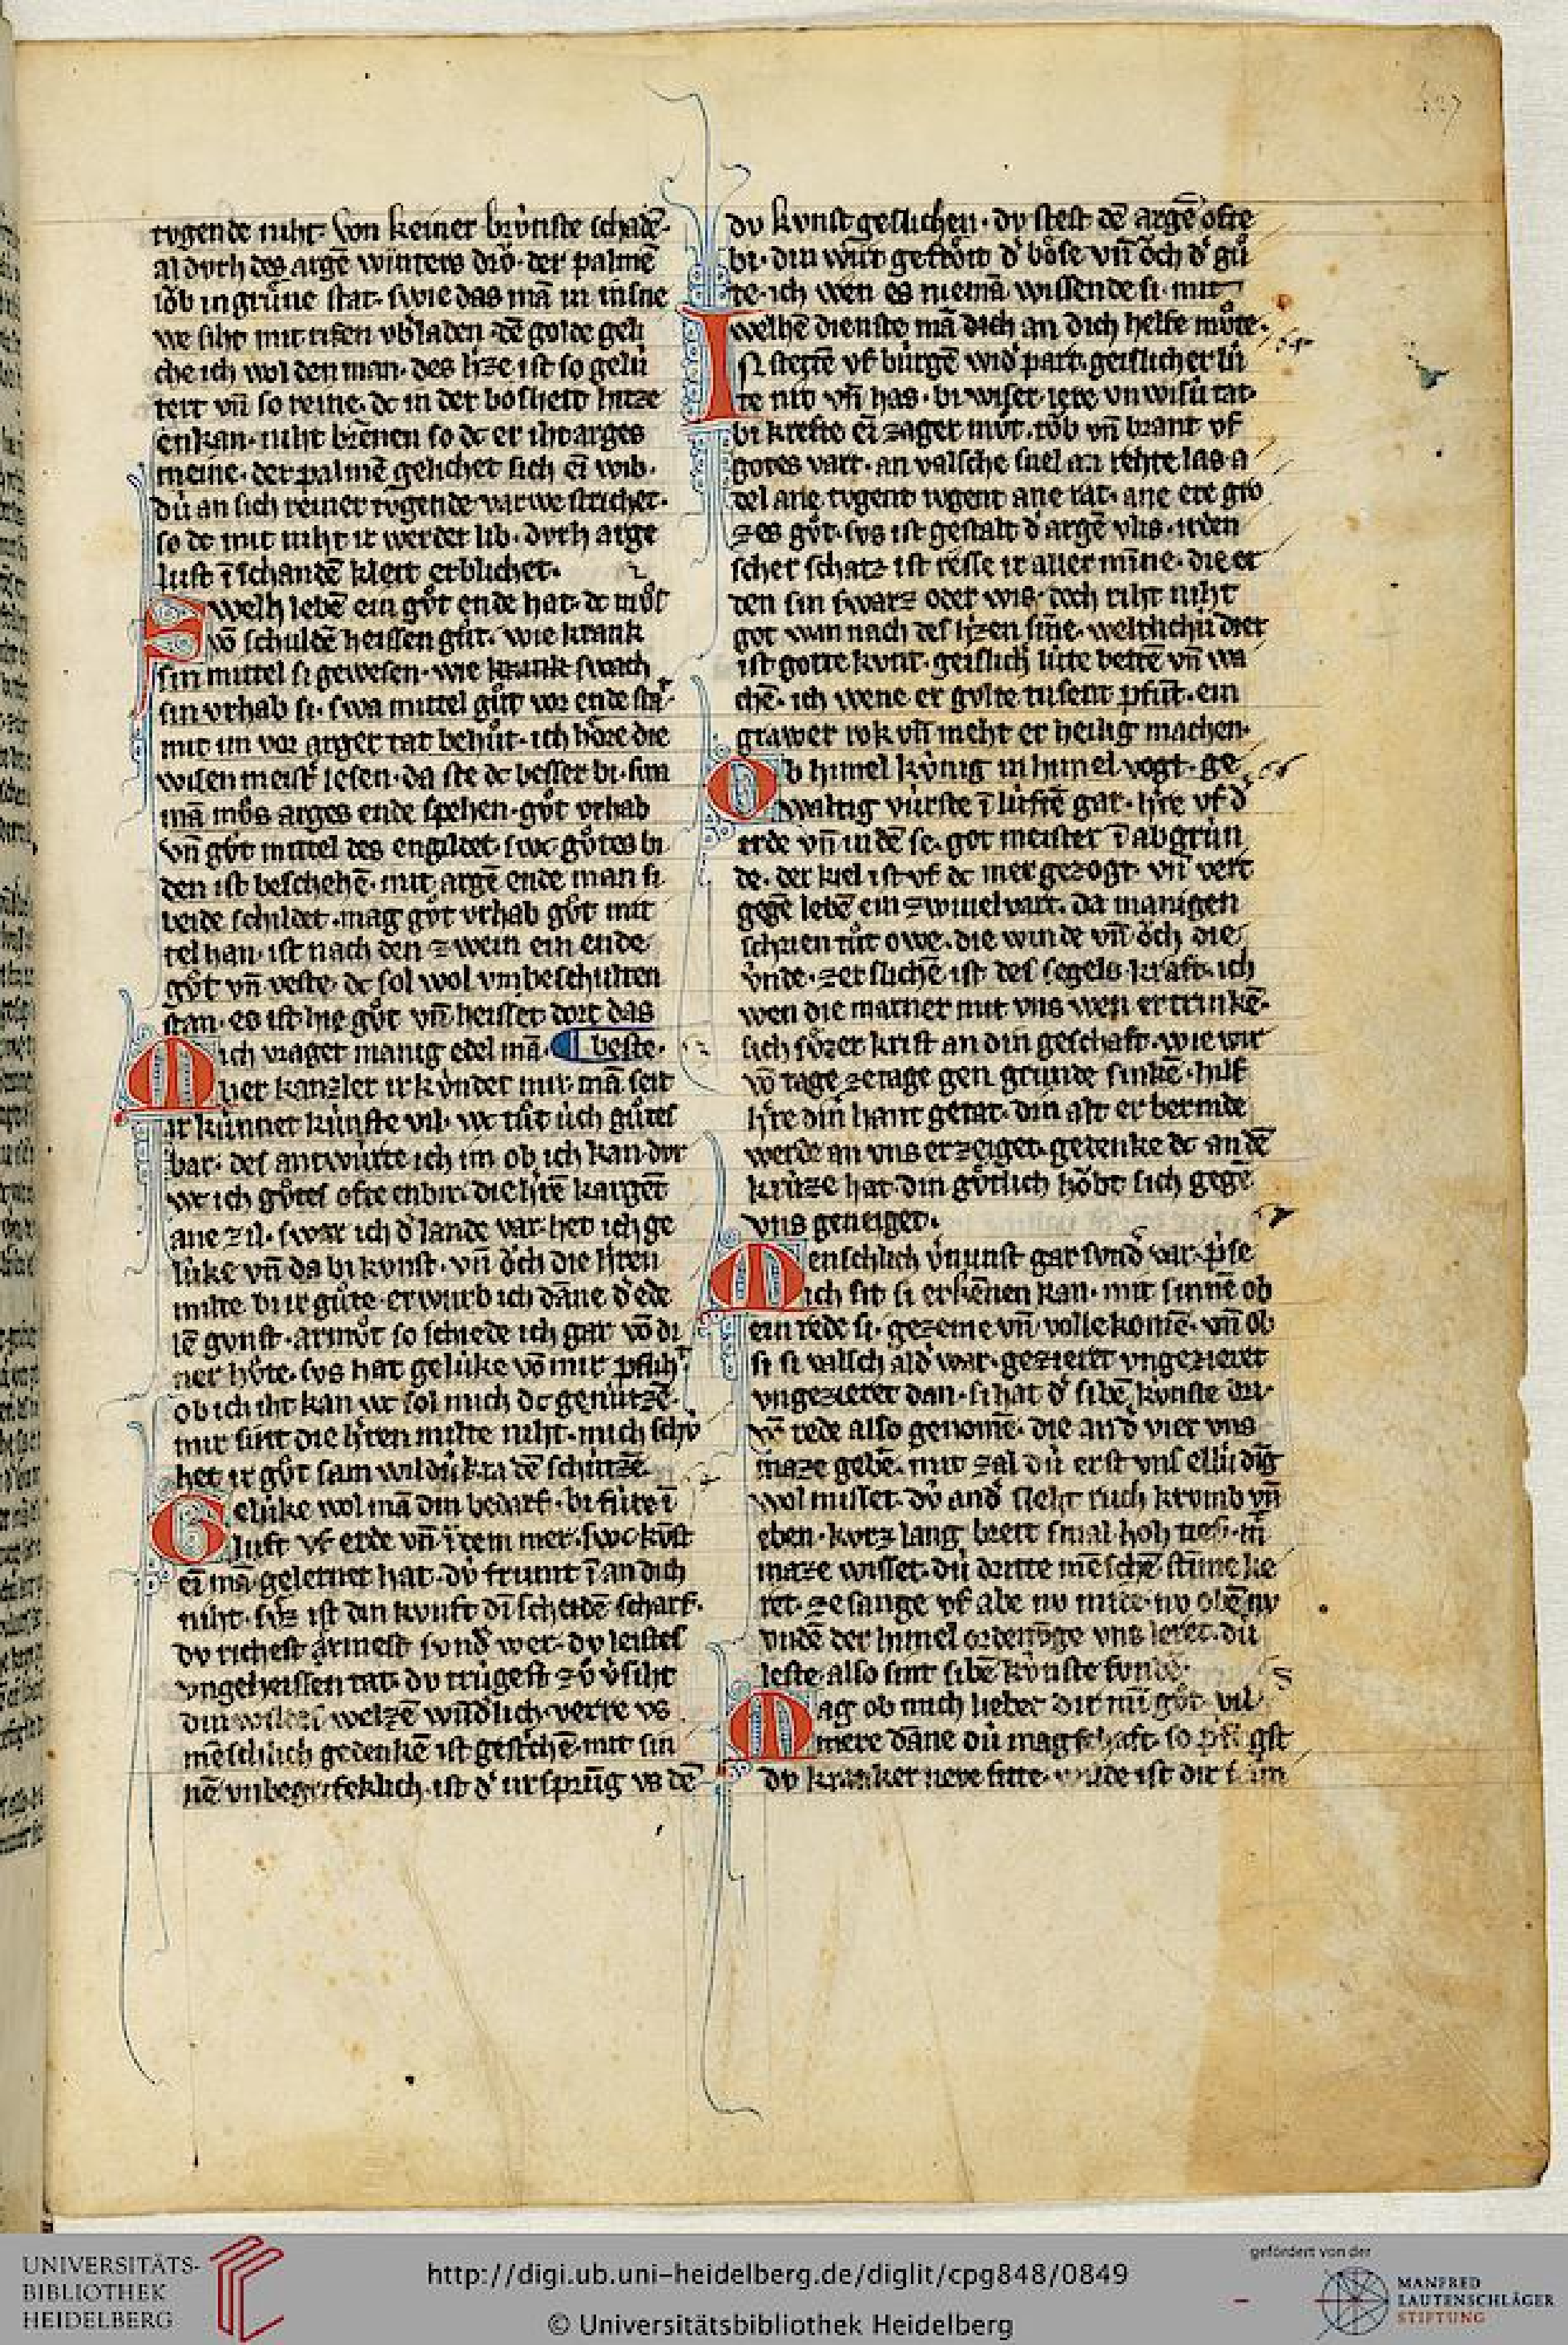 tvgende niht von keiner brúnste schadē·
al dvrh des argē winters drô· der palmē
lôb in grůne stat· swie das mā in in sne
we siht mit risen vb̾laden· dē golde geli
che ich wol den man· des h̾ze ist so gelú
tert vn̄ so reine· dc in der bosheit hitze
enkan niht brēnen so dc er iht arges
meine· der palmē gelichet sich ein wib·
dú an sich reiner tvgende varwe strichet·
so dc mit niht ir werder lib· dvrh arge
lust ī schandē kleit erblichet·
Swelh lebē ein gůt ende hat· dc můs
vō schuldē heissen gůt· wie krank
sin mittel si gewesen· wie krank swach
sin vrhab si· swa mittel gůt vor ende stat
mit im vor arger tat behůt· ich hôre die
wisen meist̾ lesen· da ste dc besser bi· sun
mā můs arges ende spehen· gůt vrhab
vn̄ gůt mittel des engildet· swc gůtes bi
den ist beschehē· mit argē ende man si
beide schildet· mag gůt vrhab gůt mit
tel han· ist nach den zwein ein ende
gůt vn̄ veste· dc sol wol vnbeschulten
stan· es ist hie gůt vn̄ heisset dort das
Mich vraget manig edel mā· beste·
her kanzler ir kúndet mir· mā seit
ir kúnnet kúnste vil· wc tůt úch gůtes
bar· des antwúrte ich im ob ich kan· dvr
wc ich gůtes ofte enbir· die h̾rē karget
ane zil· swar ich d̾ lande var· het ich ge
lúke vn̄ da bi kvnst· vn̄ ôch die h̾ren
milte bi ir gůte· erwurb ich dāne d̾ ede
lē gvnst· armůt so schiede ich gar vō di
ner hůte· svs hat gelúke vō mir pfliht
ob ich iht kan wc sol mich dc genútzē·
mir sint die h̾ren milte niht· mich schú
het ir gůt sam wildú kra dē schútzē·
Gelúke wol mā din bedarf· bi fúre ī
luft vf erde vn̄ ī dem mer· swc kūst
ein mā gelernet hat· dv frumt ī an dich
niht· svs ist din kvnft din scheidē scharf·
dv richest ármest svnd̾ wer· dv leistes
vngeheissen tat· dv trúgest zů v̾siht
din willen welzē wūd̾lich· verre vs
mēschlich gedenkē ist gestehē· mit sin
nē vnbegrifeklich· ist d̾ ursprūg vs dē
dv kvnst geslichen· dv stest dē argē ofte
bi· din wūt gekrôit d̾ bôse vn̄ ôch d̾ gů
te· ich wen es niemā wissende si· mit
welhē dienste mā dich an dich helfe můte·
In stettē vf búrgē wid̾part· geislicher lú
te nit vn̄ has· bi wiser lere vnwisú tat·
bi krefte ein zager můt· rôb vn̄ brant vf
gotes vart· an valsche snel an rehte las· a
del ane tvgent tvgent ane rat· ane ere gro
zes gůt· svs ist gestalt d̾ argē vlis· irden
scher schatz ist resse ir aller mīne· die er
den sin swarz oder wis· doch riht niht
got wan nach des h̾zen sīne· weltlichú diet
ist gotte kvnt· geislich lúte bettē vn̄ wa
chē· ich wene er gvlte tusent pfūt· ein
grawer rok vn̄ meht er heilig machen·
Ob himel kúnig in himel vogt· ge
waltig vúrste ī lúftē gar· h̾re vf d̾
erde vn̄ in dē se· got meister ī abgrún
de· der kiel ist vf dc mer gezogt· vn̄ vert
gegē lebē ein zwiuel vart· da manigen
schrien tůt owe· die winde vn̄ ôch die
v́nde· zerslichē ist des segels kraft· ich
wen die marner mit vns wen ertrinkē·
sich sůzer krist an din geschaft· wie wir
vō tage ze tage gen grunde sinkē· hilf
h̾re din hant getat· din alt erbermde
werde an vns erzeiget· gedenke dc an dē
krúze hat din gôtlich hôbt sich gegē
vns geneiget·
Menschlich v̾nunst gar svnd̾ var· prise
lich sit si erkēnen kan· mit sinnē ob
ein rede si· gezeme vn̄ vollekomē· vn̄ ob
si si valsch ald̾ war· gezieret vngezieret
vngezieret dan· si hat d̾ sibē kvnste dri·
vō rede also genomē· die and̾ vier vns
maze gebē· mit zal dú erst vns ellú ding
wol misset· dú and̾ sleht ruch krvmb vn̄
eben· kvrz lang breit smal hoh tief· mit
maze wisset· dú dritte mēschē stīme le
ret· ze sange vf abe nv mitte· nv obē nv
vndē der himel ordenvnge vns leret· dú
leste· also sint sibē kvnste fvndē·
Mag ob mich lieber dir min gůt· vil
mere dāne dú magschaft· so pfligst
dv kranker neve sitte· wilde ist dir
UNIVERSITÄTS-
BIBLIOTHEK
HEIDELBERG
http://digi.ub.uni-heidelberg.de/diglit/cpg848/0849
© Universitätsbibliothek Heidelberg
gefördert von der
MANFRED
LAUTENSCHLÄGER
STIFTUNG